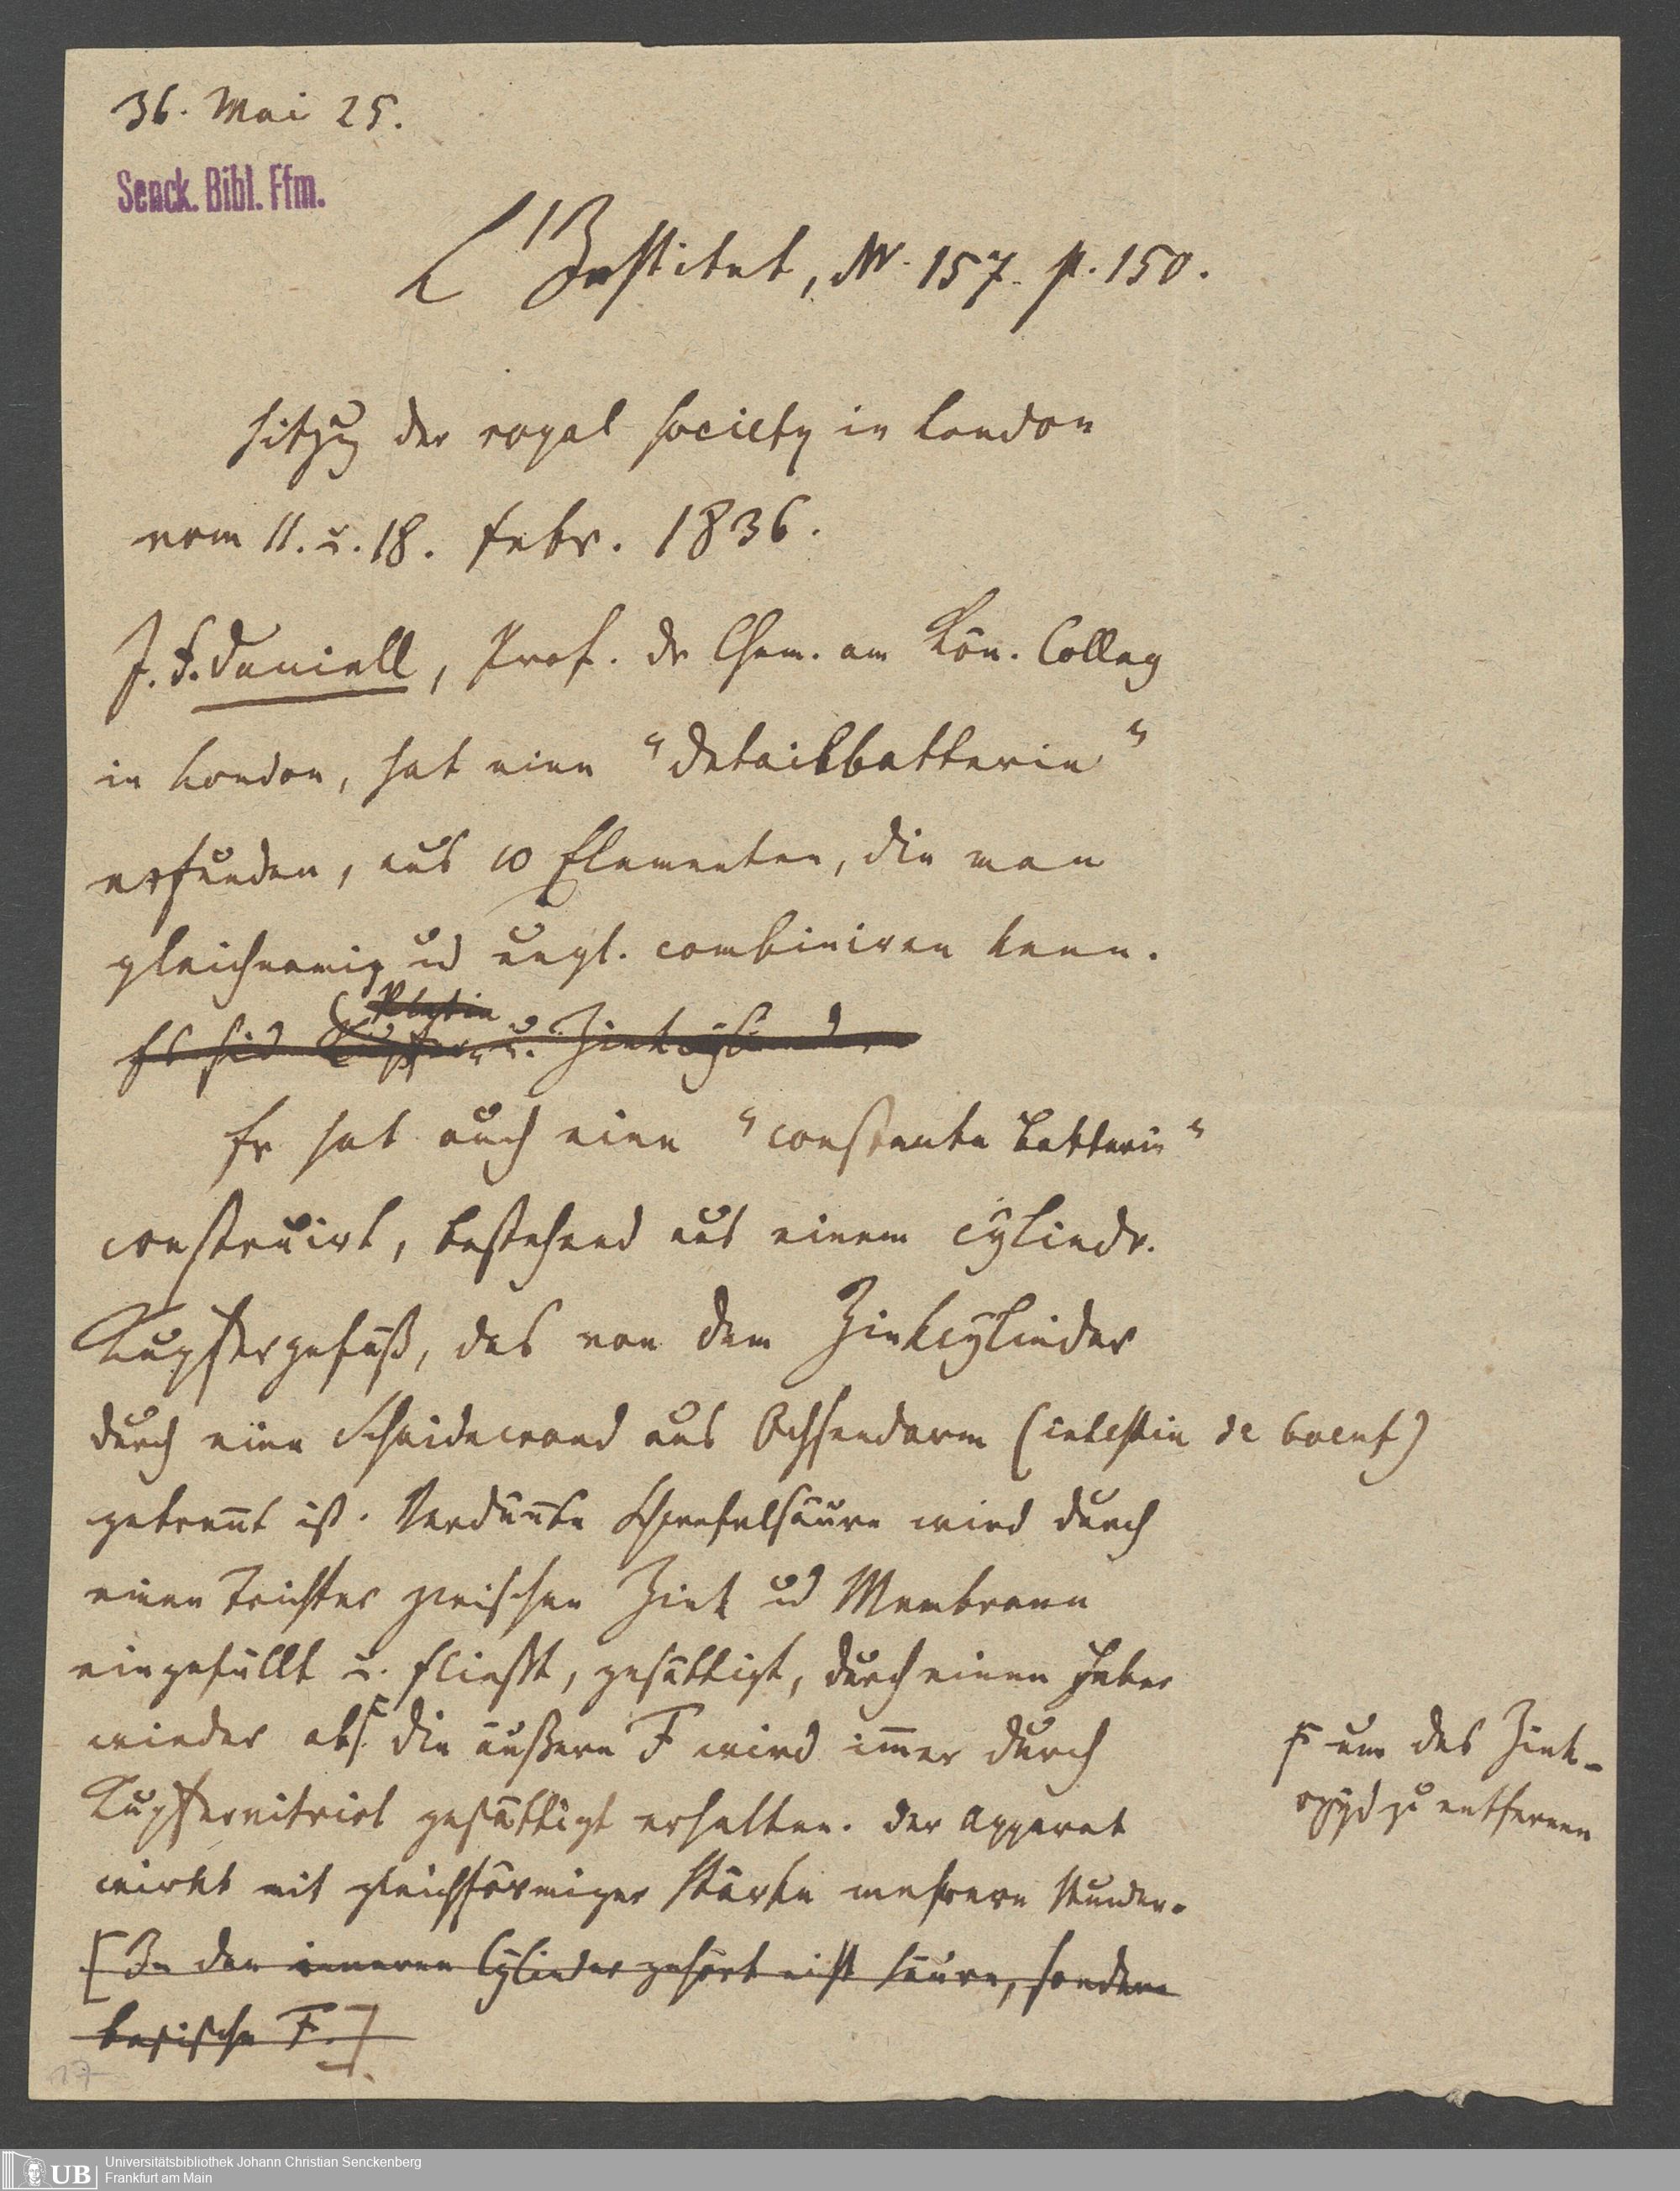 36. Mai 25.
Senck. Bibl. Ffm.
L'Institut, Nr. 157. p. 150.
Sitzg der royal society in London
vom 11. u. 18. Febr. 1836.
J. F. Daniell, Prof. dr Chem. am Kön. Colleg
in London, hat eine "Detailbatterie"
erfunden, aus 10 Elementen, die man
gleichnamig ud ungl. combiniren kann.
Platin
Es sid Kupfer- u. Zinkcylinder
Er hat auch eine "constante Batterie"
construirt, bestehend aus einem cylindr.
Kupfergefäß, das von dem Zinkcylinder
durch eine Scheidewand aus Ochsendarm (intestin de boeuf)
getrennt ist. Verdünnte Schwefelsäure wird durch
einen Trichter zwischen Zink ud Membrane
eingefüllt u. fließt, gesättigt, durch einen Heber
wieder ab. Die äußere F wird immer durch
Γ um das Zink-
oxyd zu entfernen
Kupfernitriol gesättigt erhalten. Der Apparat
wirkt mit gleichförmiger Stärke mehrere Stunden.
[In den inneren Cylinder gehört nicht Säure, sondern
basische F.]
17
UB
Universitätsbibliothek Johann Christian Senckenberg
Frankfurt am Main